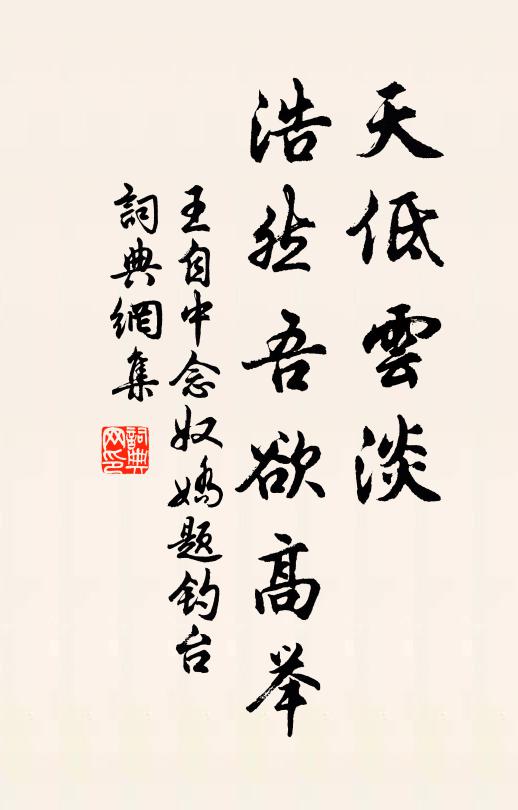 天低雲淡
浩然吾欲高举
王自中念奴嬌題釣台
詞典網集
詞典
网印